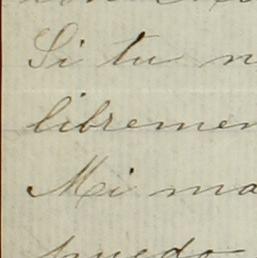 Si tu n
libremen
Mi ma
puedo